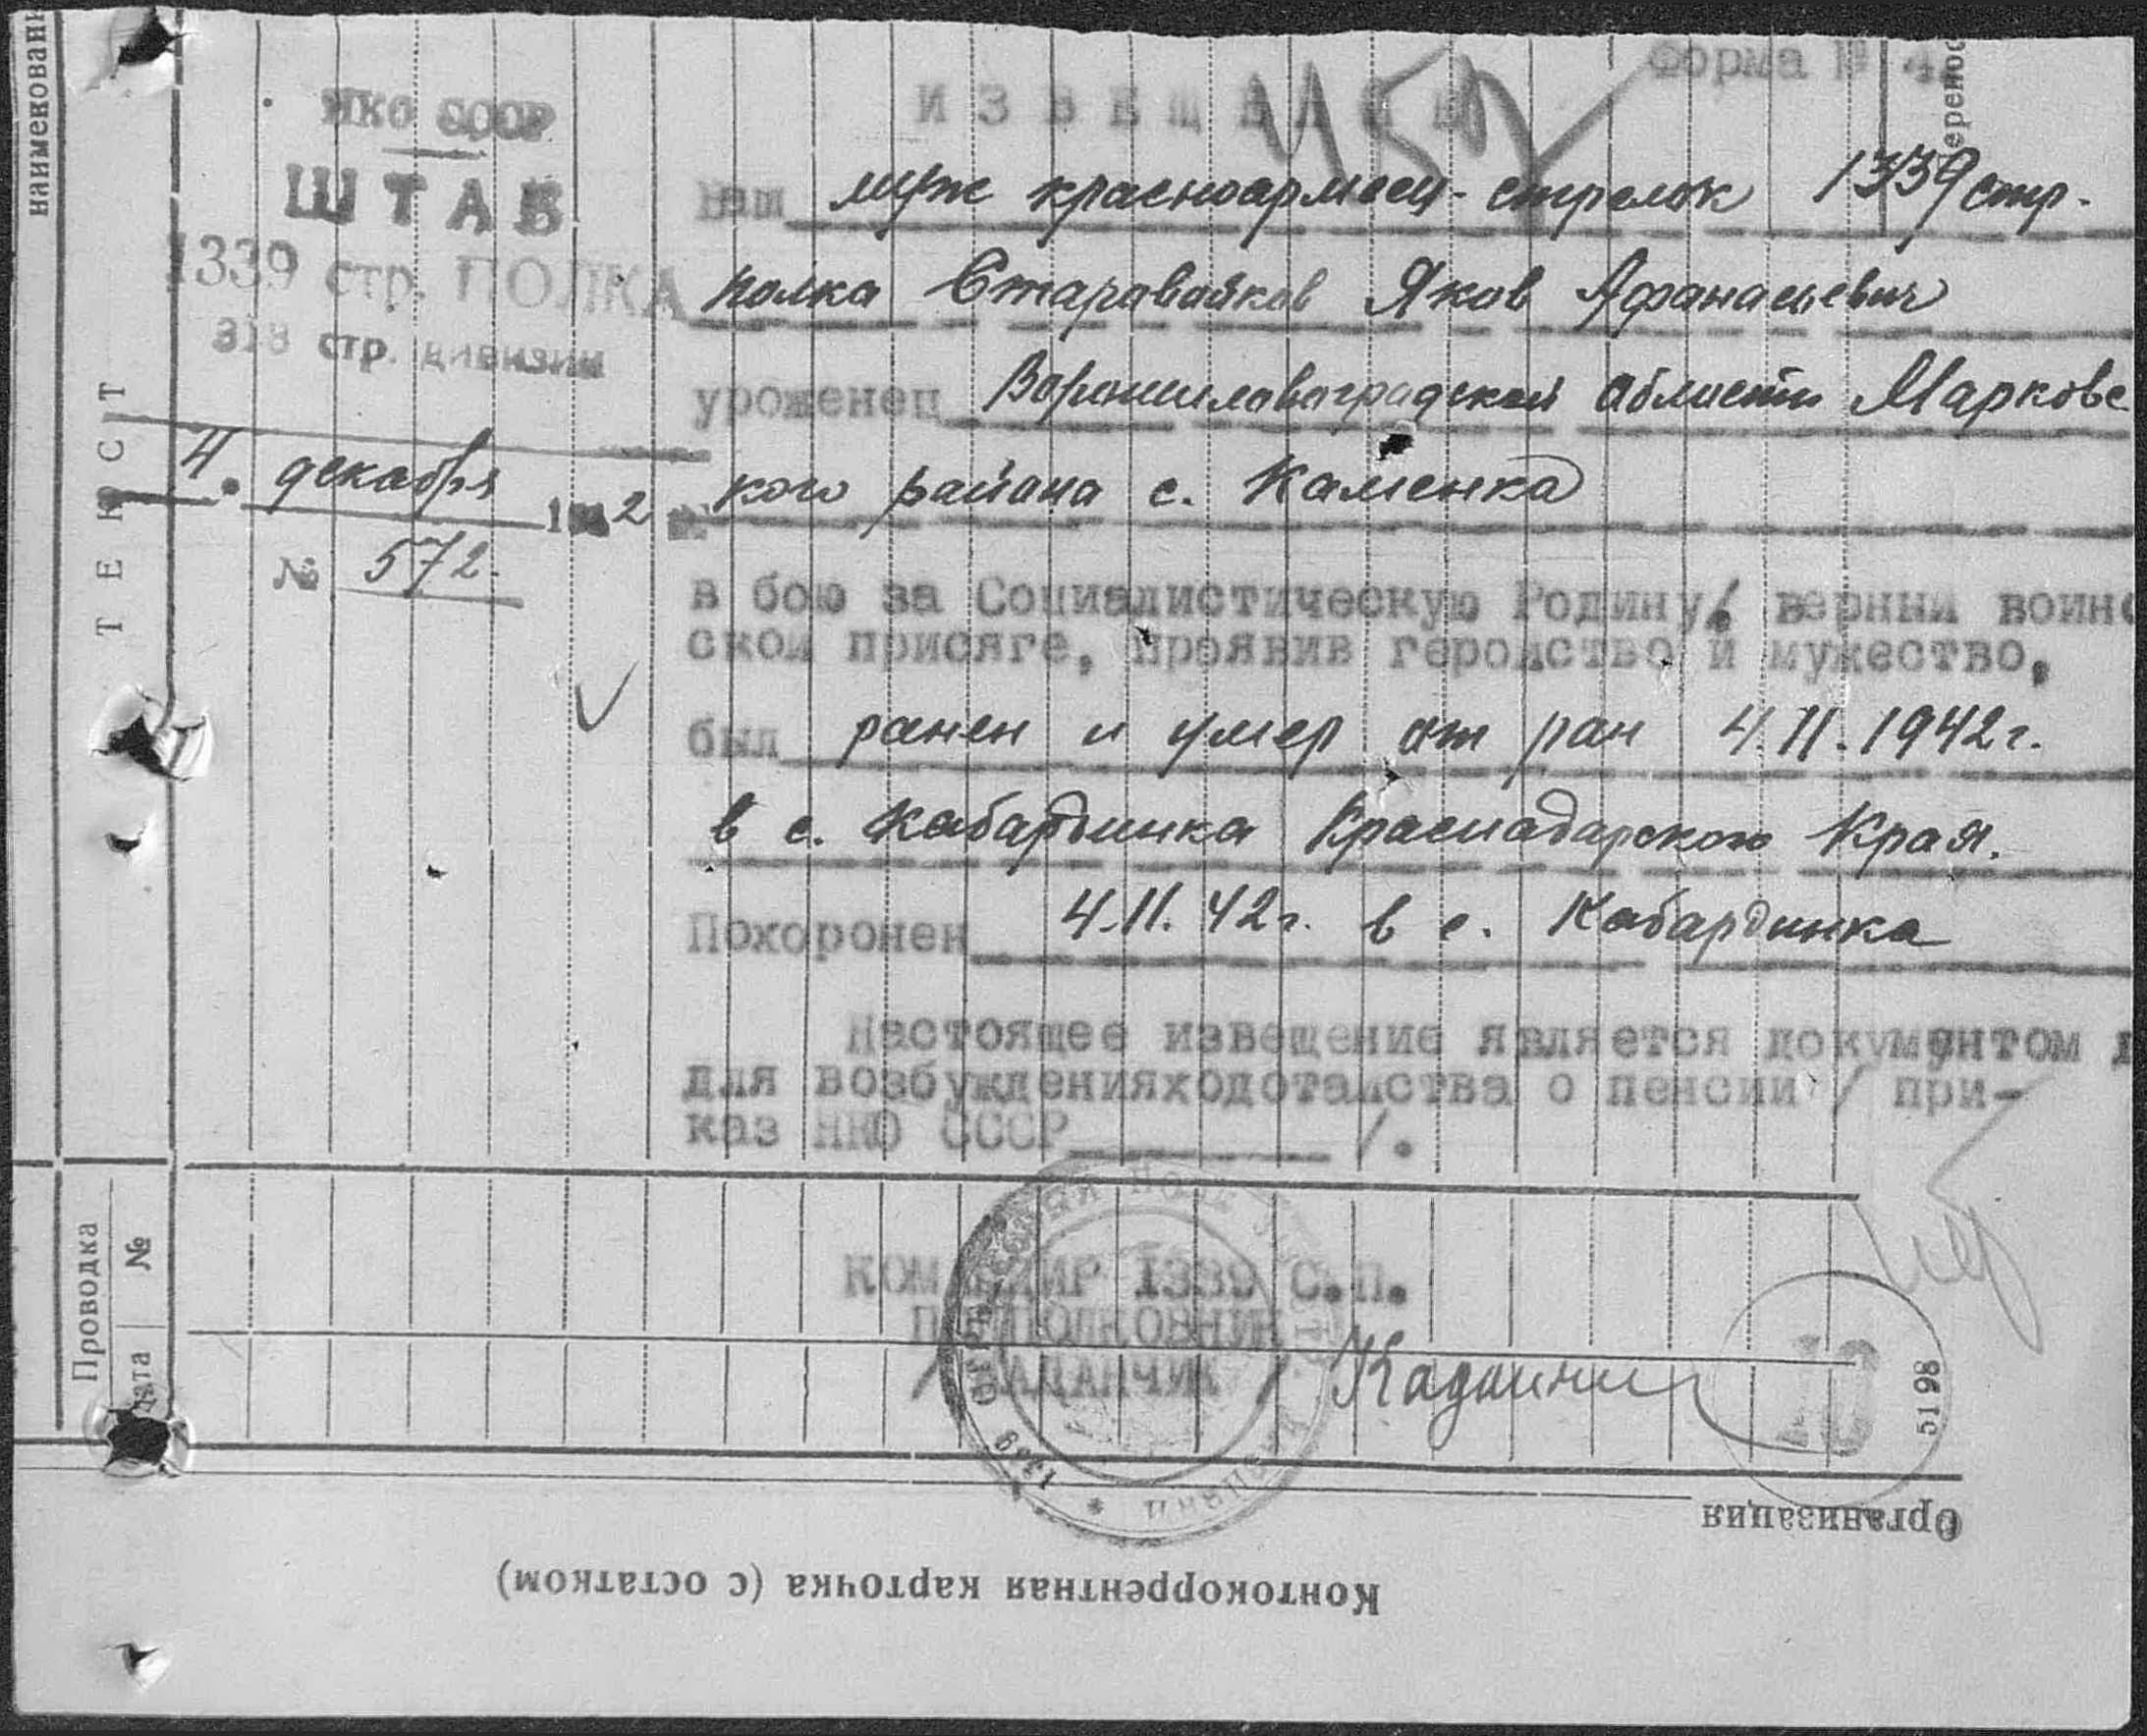 наименован
Форма № 4
ИЗВЕЩЕНИЕ
НКО СССР
ШТАБ
1339 стр. ПОЛКА
318 стр. дивизии
4. декабря 1942 г.
№ 572.
ТЕКСТ
Ваш муж красноармеец-стрелок 1339 стр.
полка Старовойков Яков Афанасьевич
уроженец Ворошиловоградской области Марковс
кого района с. Каменка
в бою за Социалистическую Родину, верный воинс
ской присяге, проявив геройство и мужество,
был ранен и умер от ран 4.11.1942г.
в с. Кабардинка Краснадарского Края.
Похоронен 4.11.42г. в с. Кабардинка
Настоящее извещение является документом д
для возбужденияходотайства о пенсии / при-
каз НКО СССР /.
КОМАНДИР 1339 С.П.
ПОДПОЛКОВНИК
/КАДАНЧИК /
1339
Проводка
№
дата
5198
Организация
Контокоррентная карточка (с остатком)